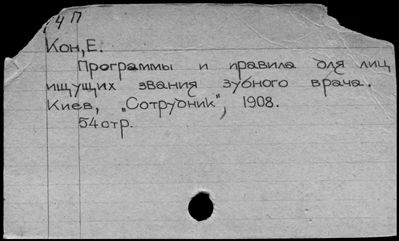 4 П
Кон, Е.
Программы и правила для лиц
ищущих звания зубного врача.
Киев, „Сотрудник", 1908.
54 стр.